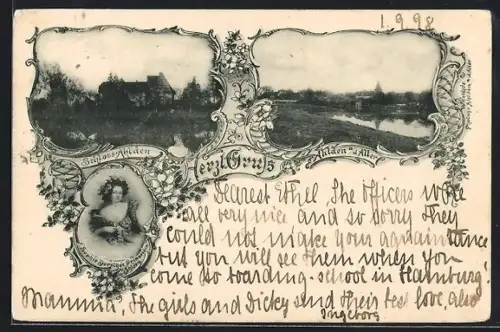 1.9.98
Schloss Ahlden
Herzl. Gruss
Ahlden a/d Aller
Dearest Ethel, The officers were
all very nice and so sorry they
could not make your aquaintance
but you will see them when you
come so boarding-school in Hamburg!
Mamma, The girls and Dicky send their best love, also
Ingeborg